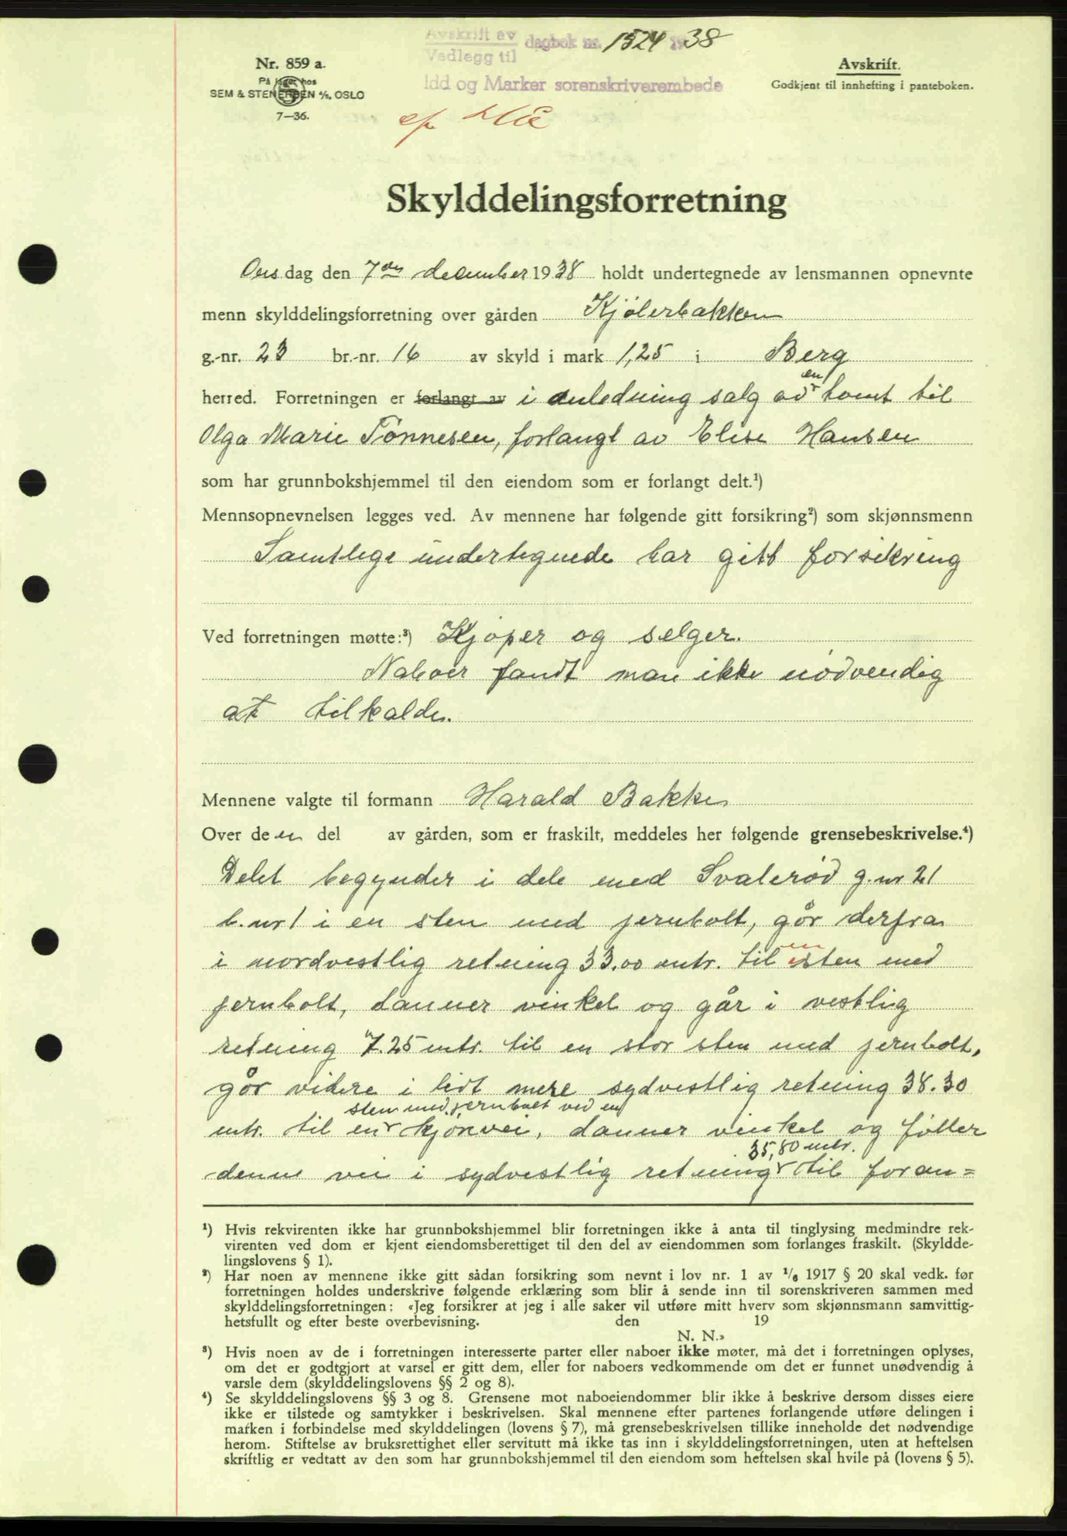 Avskrift av
Vedlegg til dagbok nr. 1524 1938
Idd og Marker sorenskriverembede
Nr. 859 a.
På lager hos
SEM & STENERSEN A/S, OSLO
7—36.
Avskrift.
Godkjent til innhefting i panteboken.
Skylddelingsforretning
Ons dag den 7de december 1938 holdt undertegnede av lensmannen opnevnte
menn skylddelingsforretning over gården Kjølerbakken
g.-nr. 23 br.-nr. 16 av skyld i mark 1,25 i Berg
herred. Forretningen er forlangt av i anledning salg av en tomt til
Olga Marie Tønnesen, forlangt av Elise Hansen
som har grunnbokshjemmel til den eiendom som er forlangt delt.¹)
Mennsopnevnelsen legges ved. Av mennene har følgende gitt forsikring²) som skjønnsmenn
Samtlige undertegnede har gitt forsikring
Ved forretningen møtte:³) Kjøper og selger.
Naboer fandt man ikke nødvendig
at tilkalde.
Mennene valgte til formann Harald Bakke
Over de en del av gården, som er fraskilt, meddeles her følgende grensebeskrivelse.⁴)
Delet begynder i dele med Svalerød g.nr 21
b.nr 1 i en sten med jernbolt, går derfra
i nordvestlig retning 33.00 mtr. til en sten med
jernbolt, danner vinkel og går i vestlig
retning 7.25 mtr. til en stor sten med jernbolt,
går videre i lidt mere sydvestlig retning 38.30
mtr. til en sten med jernbolt ved en kjørevei, danner vinkel og føller
denne vei i sydvestlig retning 35,80 mtr. til foran=
¹) Hvis rekvirenten ikke har grunnbokshjemmel blir forretningen ikke å anta til tinglysing medmindre rek-
virenten ved dom er kjent eiendomsberettiget til den del av eiendommen som forlanges fraskilt. (Skyldde-
lingslovens § 1).
²) Har noen av mennene ikke gitt sådan forsikring som nevnt i lov nr. 1 av 1/6 1917 § 20 skal vedk. før
forretningen holdes underskrive følgende erklæring som blir å sende inn til sorenskriveren sammen med
skylddelingsforretningen: «Jeg forsikrer at jeg i alle saker vil utføre mitt hverv som skjønnsmann samvittig-
hetsfullt og efter beste overbevisning. den 19
N. N.»
³) Hvis noen av de i forretningen interesserte parter eller naboer ikke møter, må det i forretningen oplyses,
om det er godtgjort at varsel er gitt dem, eller for naboers vedkommende om det er funnet unødvendig å
varsle dem (skylddelingslovens §§ 2 og 8).
⁴) Se skylddelingslovens §§ 3 og 8. Grensene mot naboeiendommer blir ikke å beskrive dersom disses eiere
ikke er tilstede og samtykker i beskrivelsen. Skal mennene efter partenes forlangende utføre delingen i
marken i forbindelse med skylddelingen (lovens § 7), må grensebeskrivelsen tillike inneholde det nødvendige
herom. Stiftelse av bruksrettighet eller servitutt må ikke tas inn i skylddelingsforretningen, uten at heftelsen
skriftlig er vedtatt av den som har grunnbokshjemmel til den eiendom som heftelsen skal hvile på (lovens § 5).